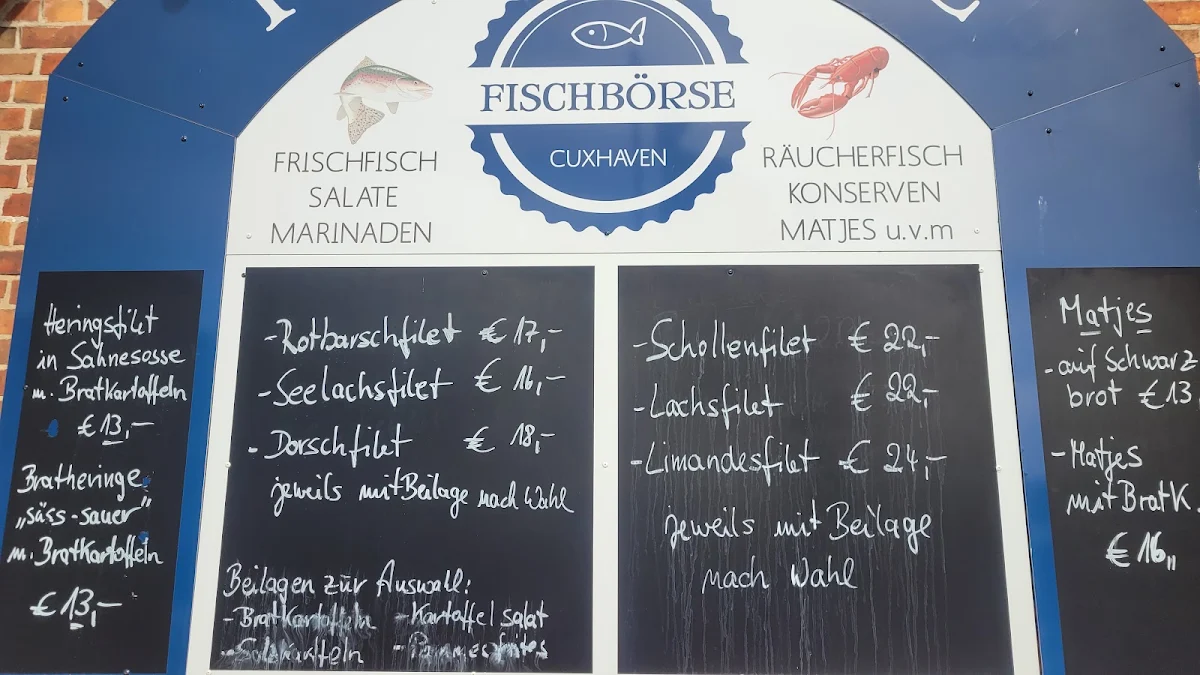 FISCHBÖRSE
CUXHAVEN
FRISCHFISCH
SALATE
MARINADEN
RÄUCHERFISCH
KONSERVEN
MATJES u.v.m
Heringsfilet
in Sahnesosse
m. Bratkartoffeln
€ 13,-
Bratheringe
„süss-sauer"
m. Bratkartoffeln
€ 13,-
- Rotbarschfilet € 17,-
- Seelachsfilet € 16,-
- Dorschfilet € 18,-
jeweils mit Beilage nach Wahl
Beilagen zur Auswahl:
- Bratkartoffeln - Kartoffelsalat
- Salzkartoffeln - Pommesfrites
- Schollenfilet € 22,-
- Lachsfilet € 22,-
- Limandesfilet € 24,-
jeweils mit Beilage
nach Wahl
Matjes
- auf Schwarz
brot € 13
- Matjes
mit BratK.
€ 16,,